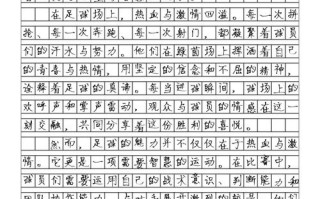 在足球场上，热血与激情四溢。每一次拼
抢、每一次奔跑、每一次射门，都凝聚着球员
们的汗水与努力。他们在绿茵场上挥洒着自己
的青春与热情，用坚定的信念和不屈的精神，
诠释着足球的真谛。每当过球瞬间，球场上的
欢呼声和掌声雷动，观众与球员的情感在这一
刻交融，共同分享着这份胜利的喜悦。
然而，足球的魅力并不仅仅在于热血与激
情。它更是一项需要智慧的运动。在比赛中，
球员们需要运用自己的战术意识、判断能力和